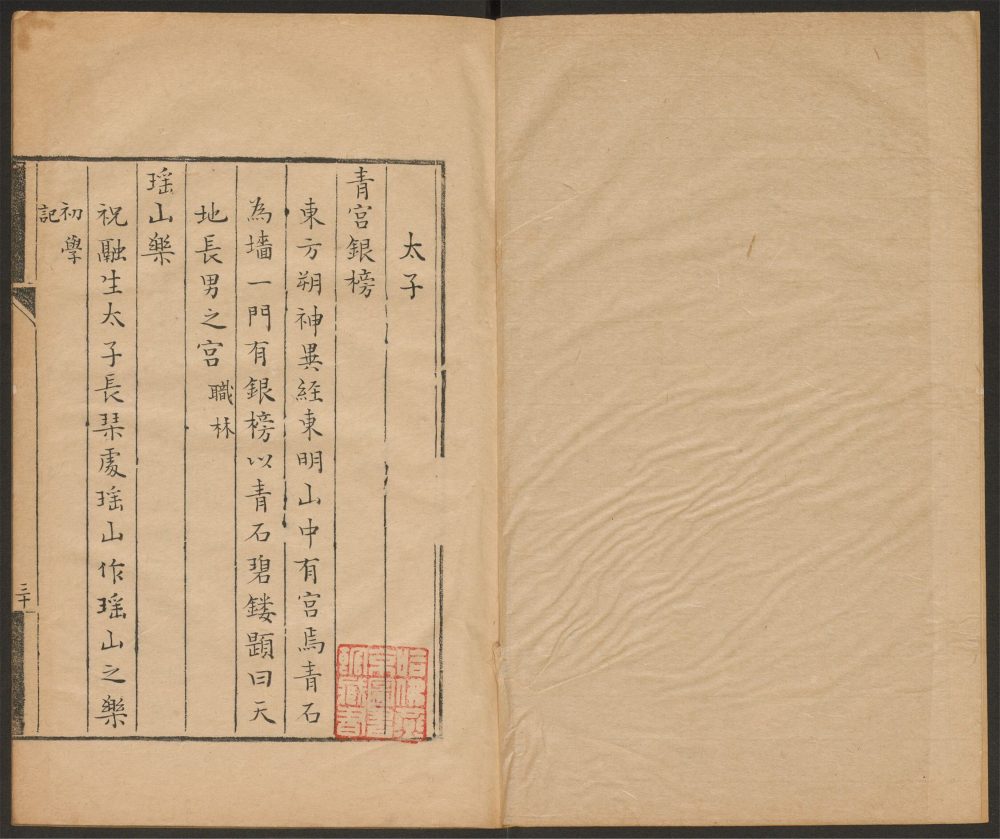 太子
青宮銀榜
東方朔神異経東明山中有宮焉青石
為墻一門有銀榜以青石碧鏤題曰天
地長男之宮 職林
瑶山樂
祝融生太子長琹處瑶山作瑶山之樂
初學
記
三十
哈佛燕
京圖書
館藏書